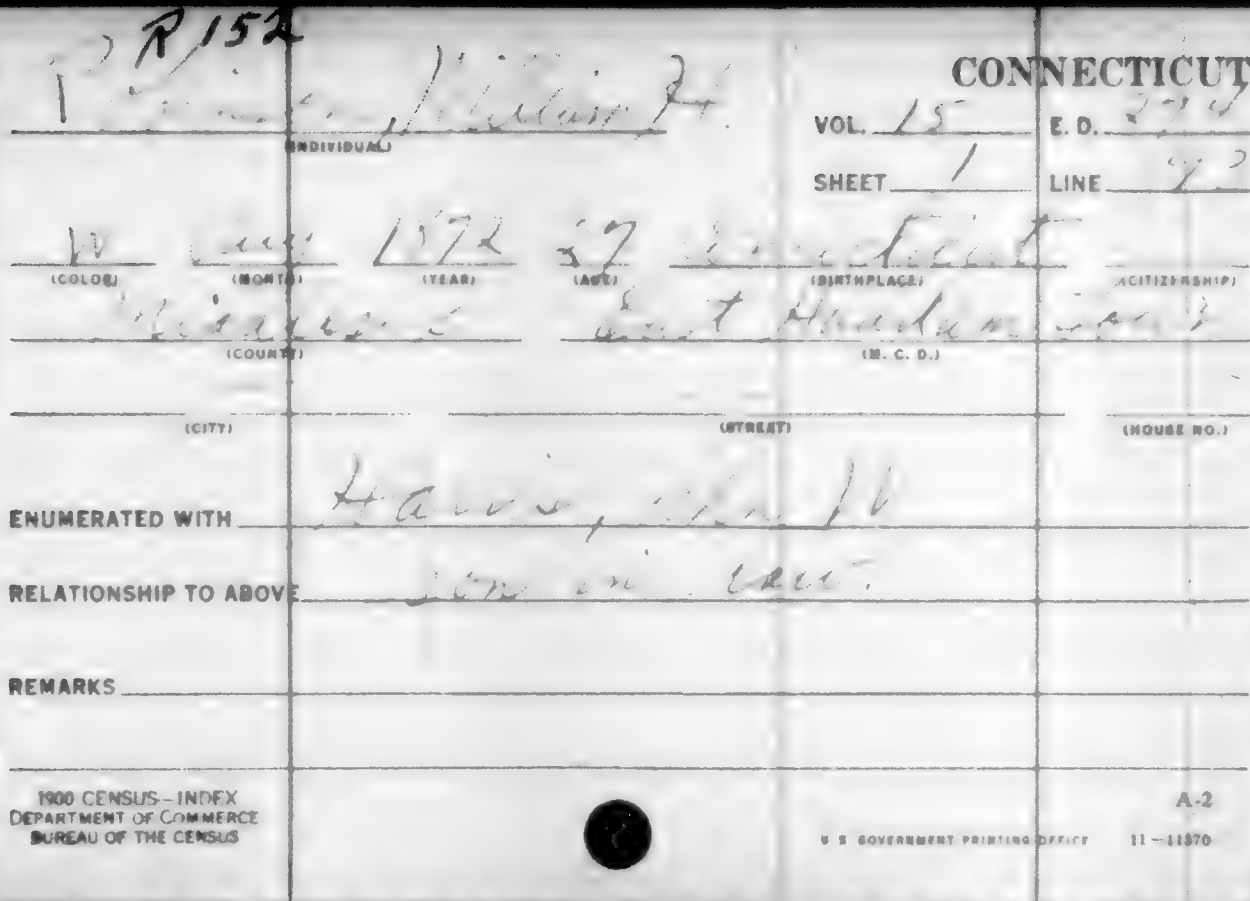 R 152
CONNECTICUT
William H.
VOL. 15 E. D.
(INDIVIDUAL)
SHEET 1 LINE
W 1872 27 Connecticut
(COLOR) (MONTH) (YEAR) (AGE) (BIRTHPLACE) (CITIZENSHIP)
Middlesex East Haddam
(COUNTY) (M. C. D.)
(CITY) (STREET) (HOUSE NO.)
ENUMERATED WITH W
RELATIONSHIP TO ABOVE son in law.
REMARKS
1900 CENSUS - INDEX
DEPARTMENT OF COMMERCE
BUREAU OF THE CENSUS
A-2
U S GOVERNMENT PRINTING OFFICE 11-11870